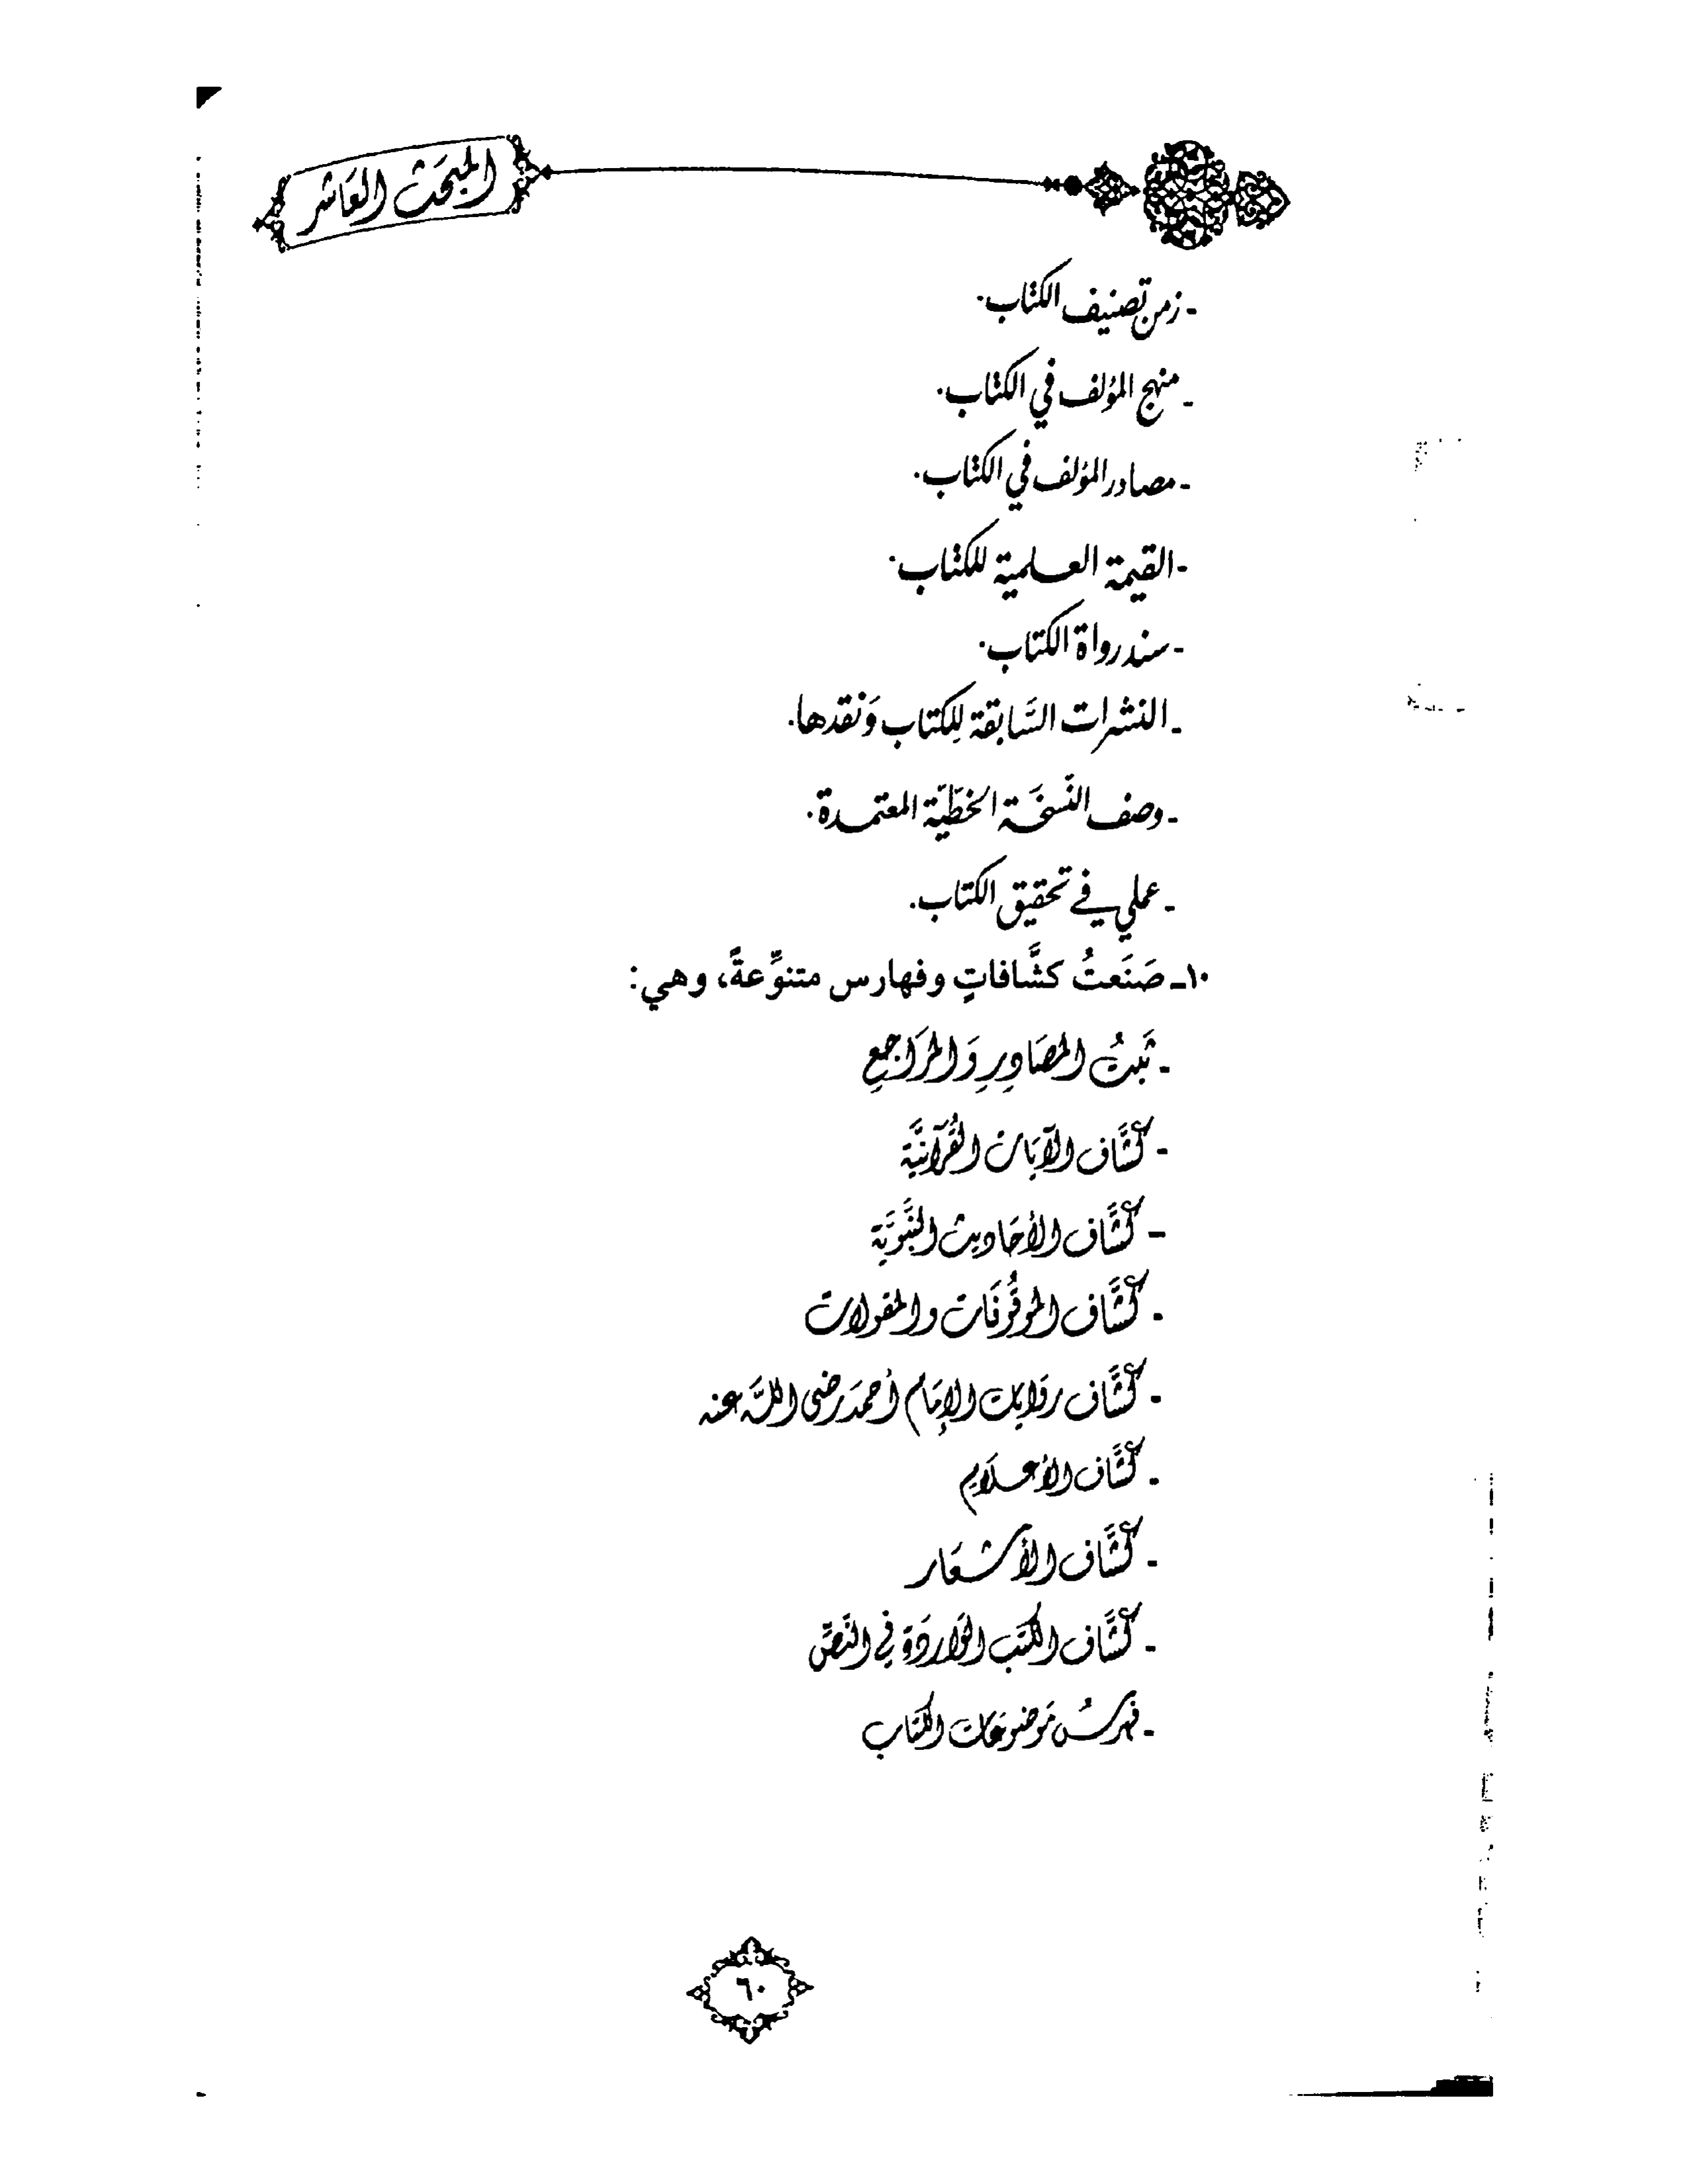 المبحَث العَاشر
- زمن تصنيف الكتاب.
- منهج المؤلف في الكتاب.
- مصادر المؤلف في الكتاب.
- القيمة العلمية للكتاب.
- سند رواة الكتاب.
- النشرات السَّابقة لِلكتاب وَنقدها.
- وصف النّسخَة الخطّيّة المعتمدة.
- عملي في تحقيق الكتاب.
١٠ـ صَنَعتُ كشَّافاتٍ وفهارس متنوِّعةً، وهي:
- ثَبتُ المصَادِرِ وَالمرَاجعِ
- كشَّاف الآيَات القُرآنيَّة
- كشَّاف الأحَاديث النَّبَويَّة
- كشَّاف الموقُوفَات والمقولات
- كشَّاف روَايات الإمَام أحمَد رضى اللَّه عنه
- كشَّاف الأعلَام
- كشَّاف الأشعَار
- كشَّاف الكتَب الوَاردَة في النَّصِّ
- فهرسُ مَوضوعَات الكتَاب
٦٠